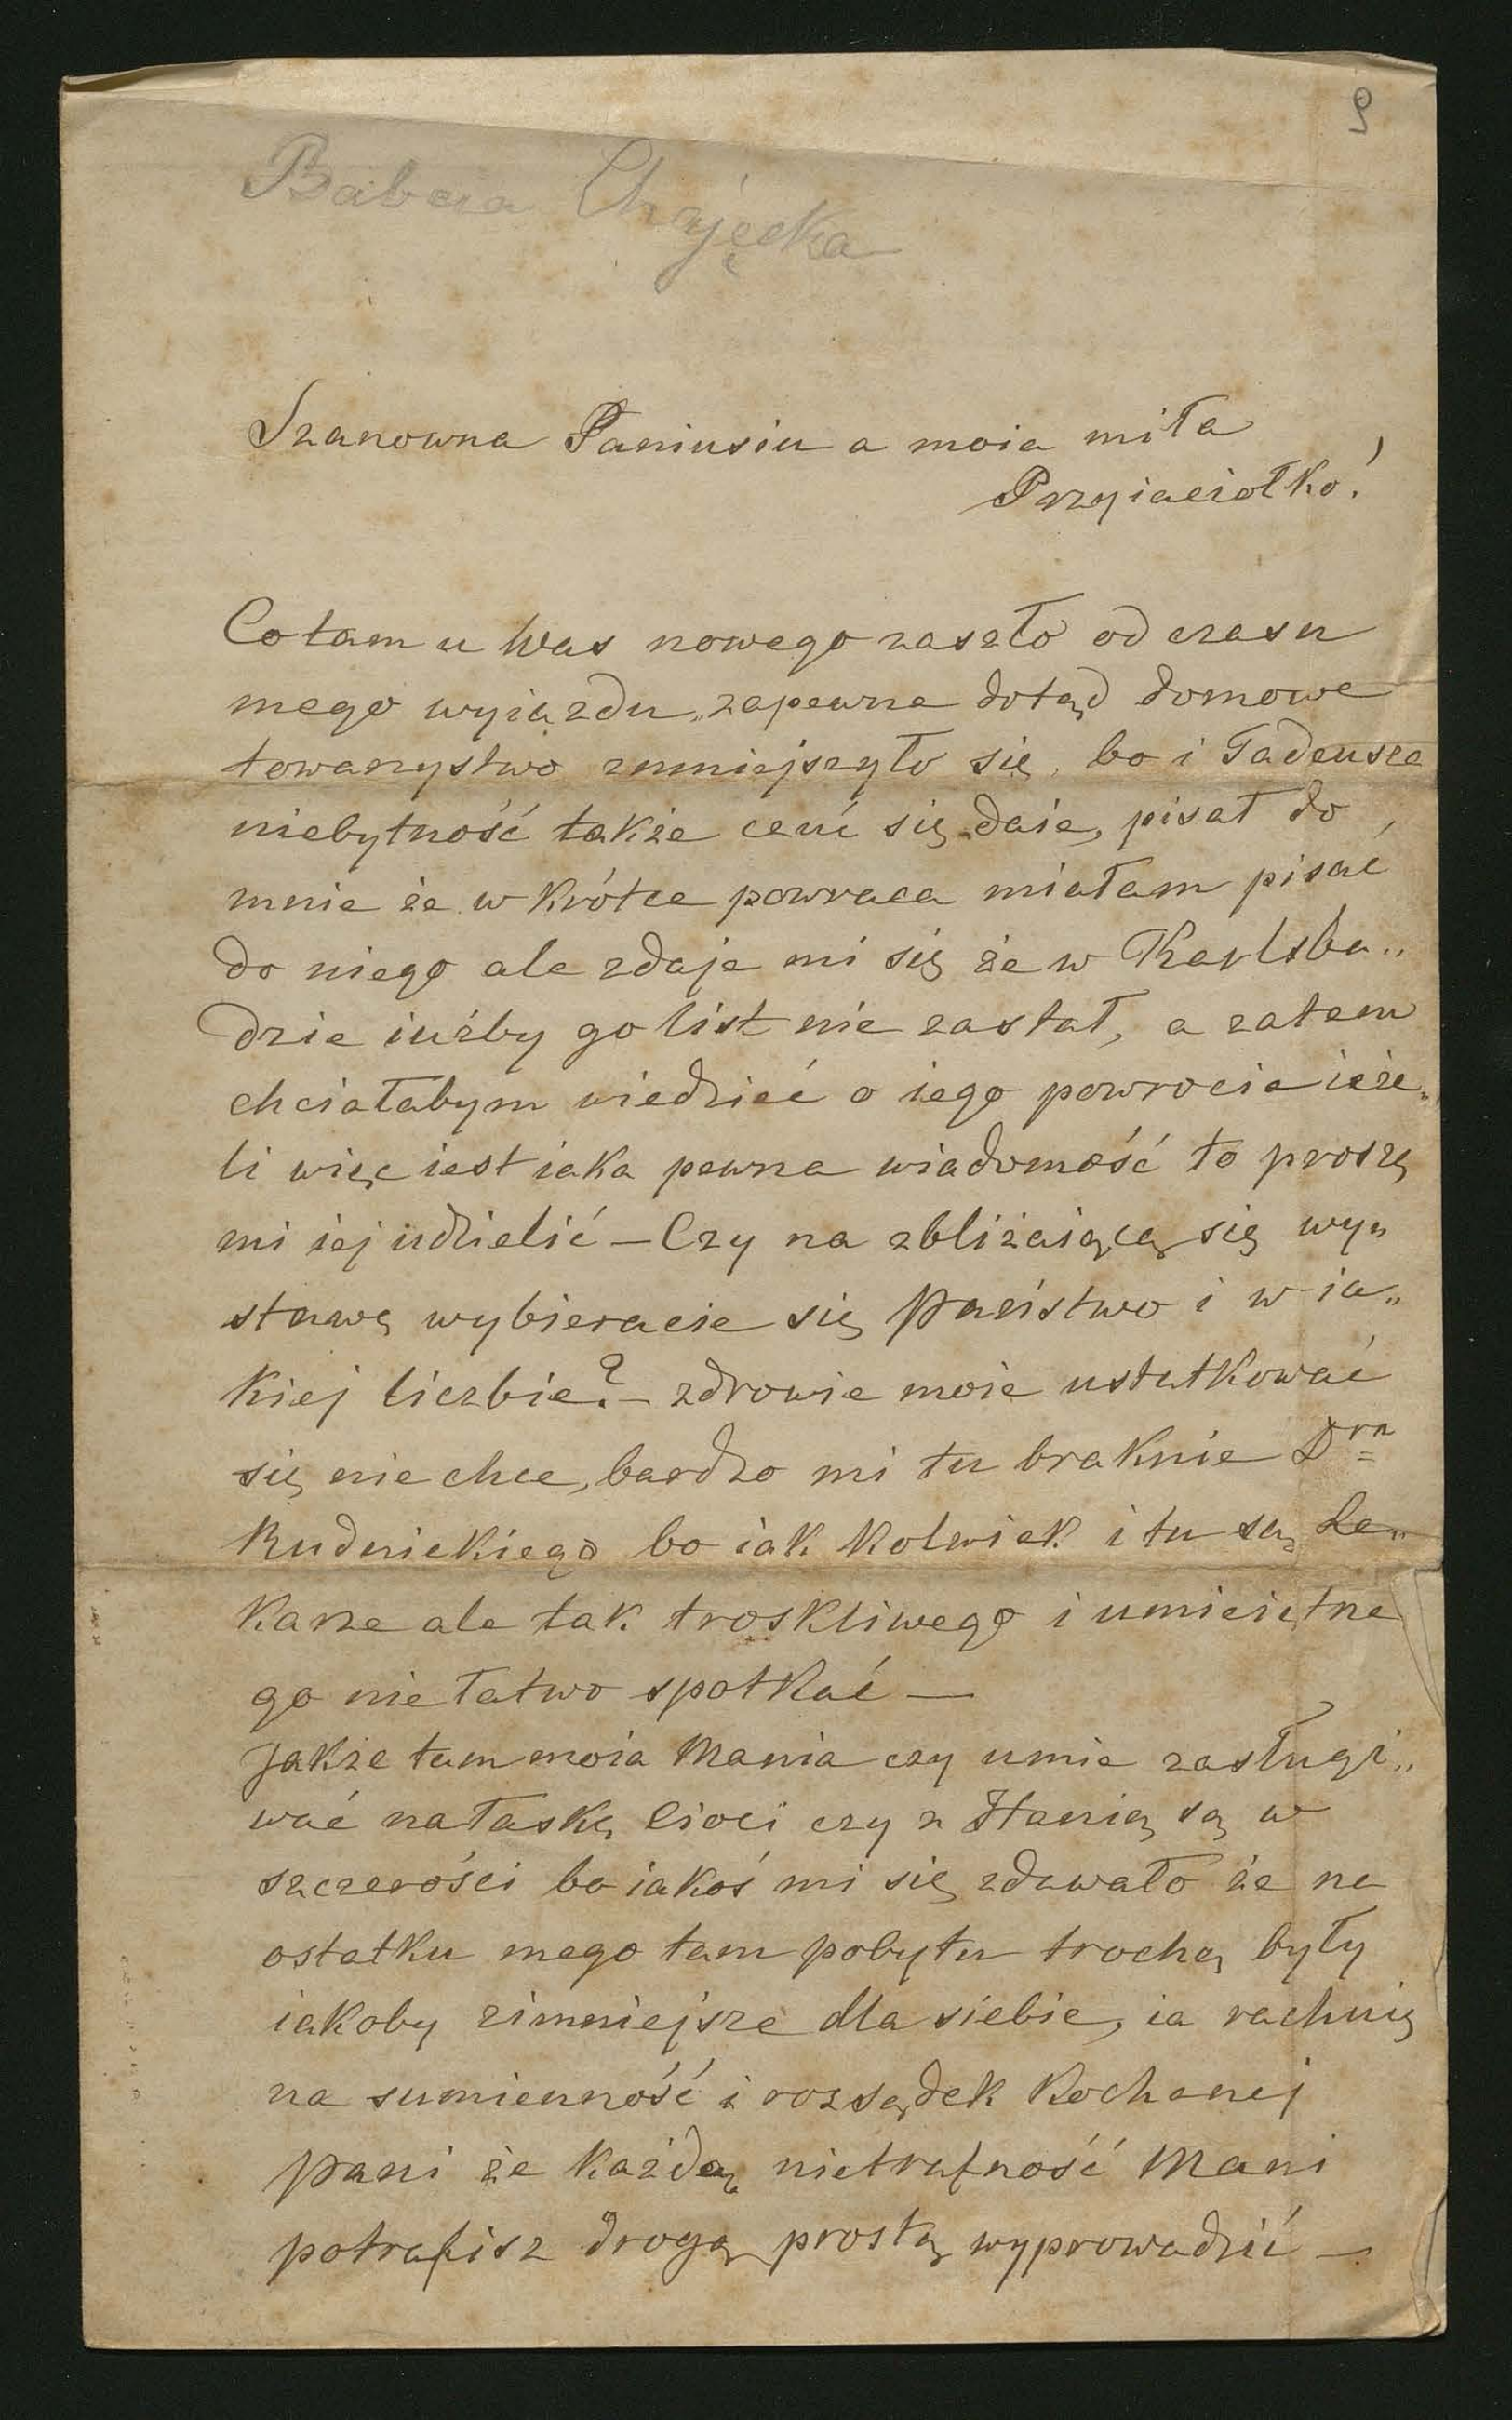 9
Babcia
Szanowna Paniusiu a moia miła
Przyiaciołko!
Co tam u Was nowego zaszło od czasu
mego wyiazdu, zapewne dotąd domowe
towarzystwo zmniejszyło się, bo i Tadeusza
niebytność także czuć się daie, pisał do
mnie że w krótce powraca miałam pisać
do niego ale zdaje mi się że w Karlsba„
dzie iużby go list nie zastał, a zatem
chciałabym wiedzieć o iego powrocie ieże„
li więc iest iaka pewna wiadomość to proszę
mi iej udzielić — Czy na zbliżaiącą się wy„
stawę wybieracie się Państwo i w ia„
kiej liczbie? — zdrowie moie ustatkować
się nie chce, bardzo mi tu braknie Dra
Rudnickiego bo iak kolwiek i tu są Le„
karze ale tak troskliwego i umieiętne
go nie łatwo spotkać —
Jakże tam moia Mania czy umie zasługi„
wać na łaskę Cioci czy z Hanią są w
szczerości bo iakoś mi się zdawało że na
ostatku mego tam pobytu trochę były
iakoby zimniejsze dla siebie, ia rachuię
na sumienność i rozsądek Kochanej
Pani że każdą nietrafność Mani
potrafisz drogą prostą wyprowadzić —